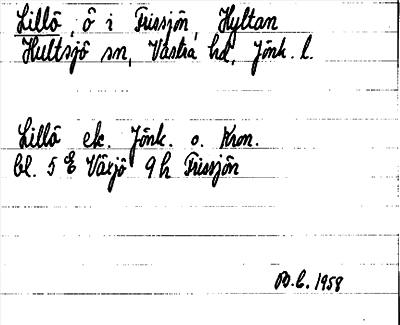 Lillö, ö i Frissjön, Hyltan
Hultsjö sn, Västra hd, Jönk. l.
Lillö ek. Jönk. o. Kron.
bl. 5 E Växjö 9 h Frissjön
1958